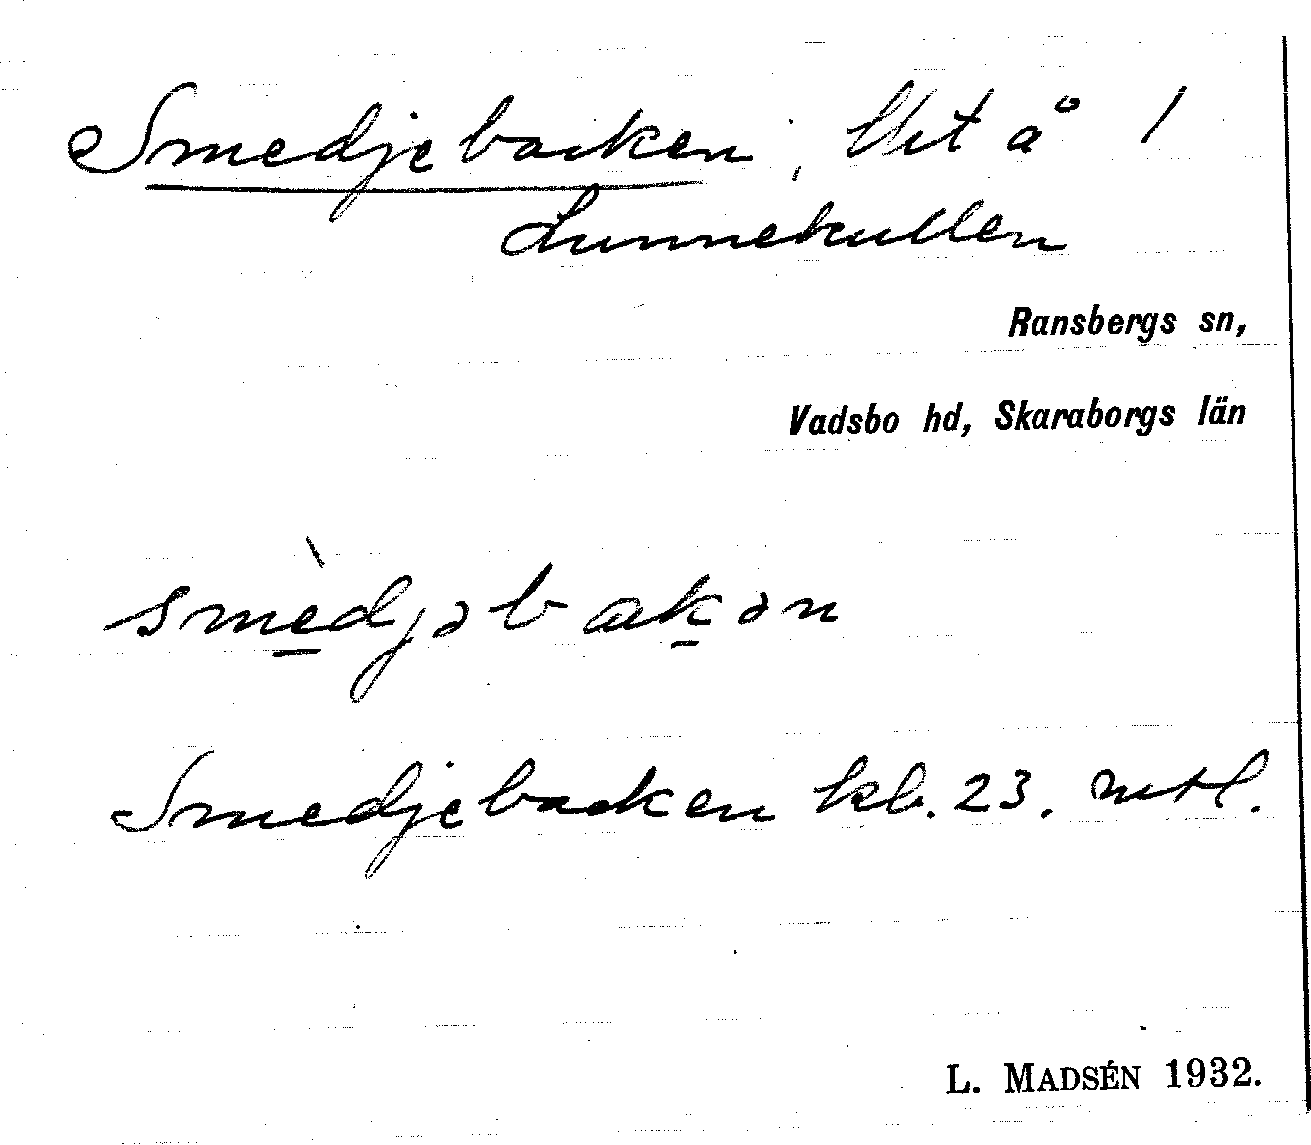 Smedjebacken, Utå 1
Lunnekullen
Ransbergs sn,
Vadsbo hd, Skaraborgs län
smèdjəbakən
Smedjebacken kb. 23. mtl.
L. MADSÉN 1932.